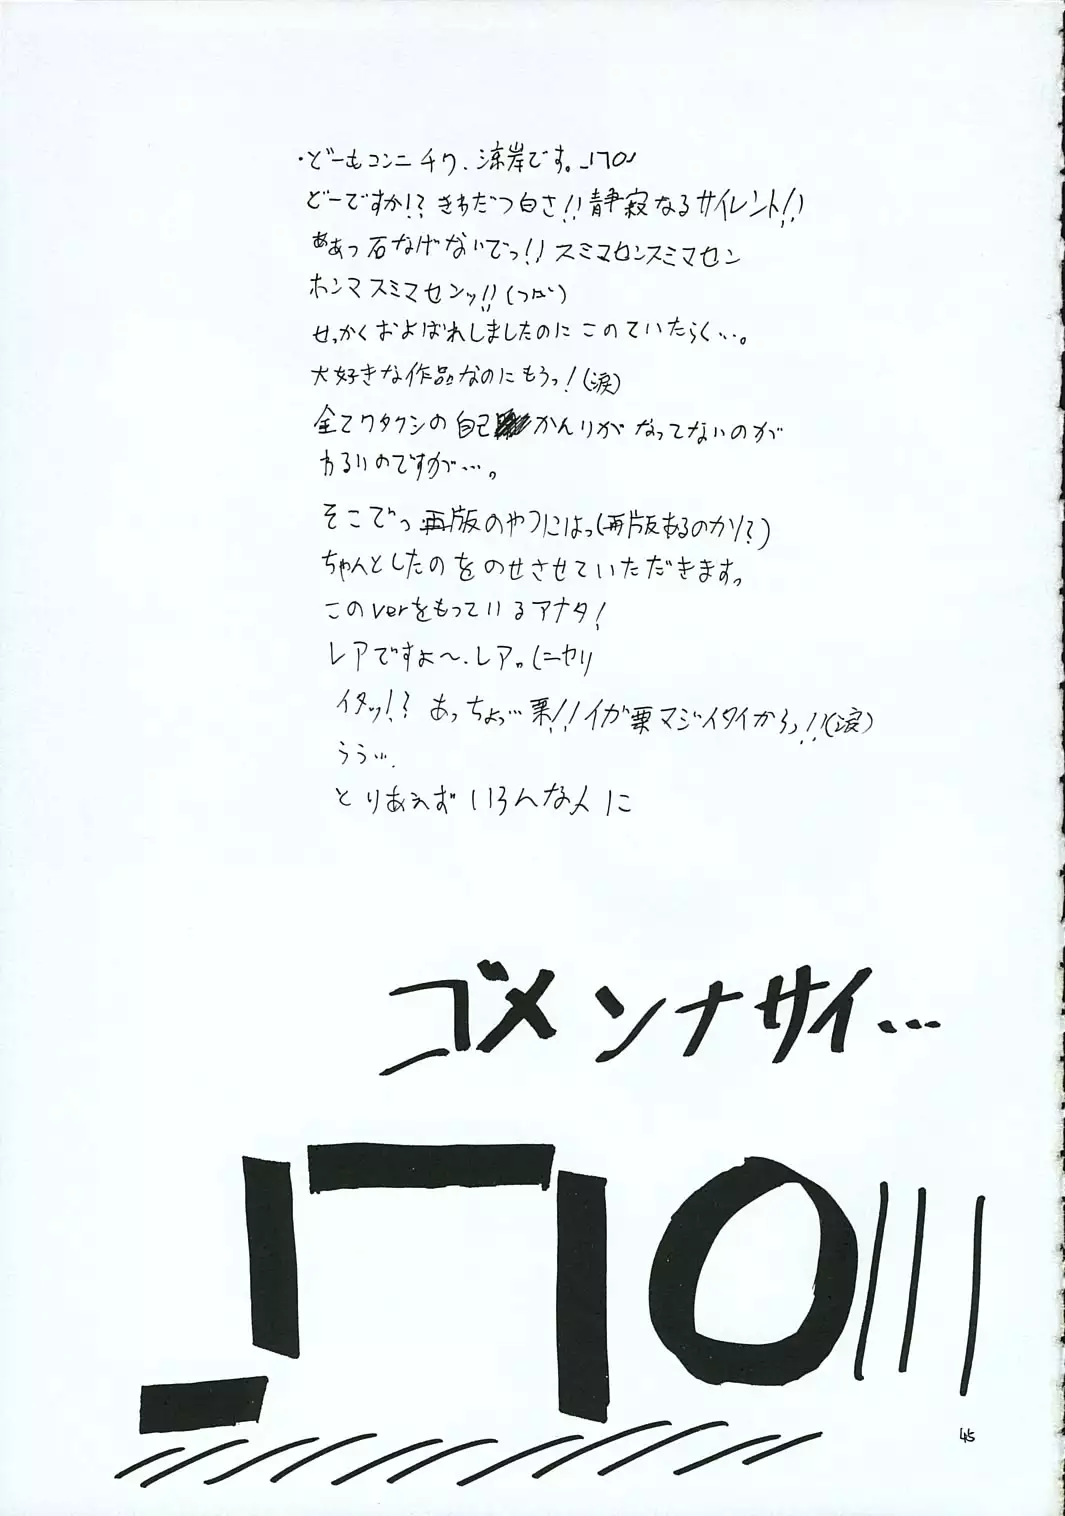 ・どーもコンニチワ、涼岸です。_| ̄|○
どーですか!?きわだつ白さ!!静寂なるサイレント!!
ああっ石なげないでっ!!スミマセンスミマセン
ホンマスミマセンッ!!
せっかくおよばれしましたのにこのていたらく…。
大好きな作品なのにもうっ!(涙)
全てワタクシの自己かんりがなってないのが
わるいのですが…。
そこでっ再版のやつにはっ(再版あるのか!?)
ちゃんとしたのをのせさせていただきます。
このverをもっているアナタ!
レアですよ〜、レア。(ニヤリ
イタッ!?あっちょっ…栗!!イガ栗マジイタイからっ!!(涙)
うぅ…
とりあえずいろんな人に
ゴメンナサイ…
_| ̄|○|||
45